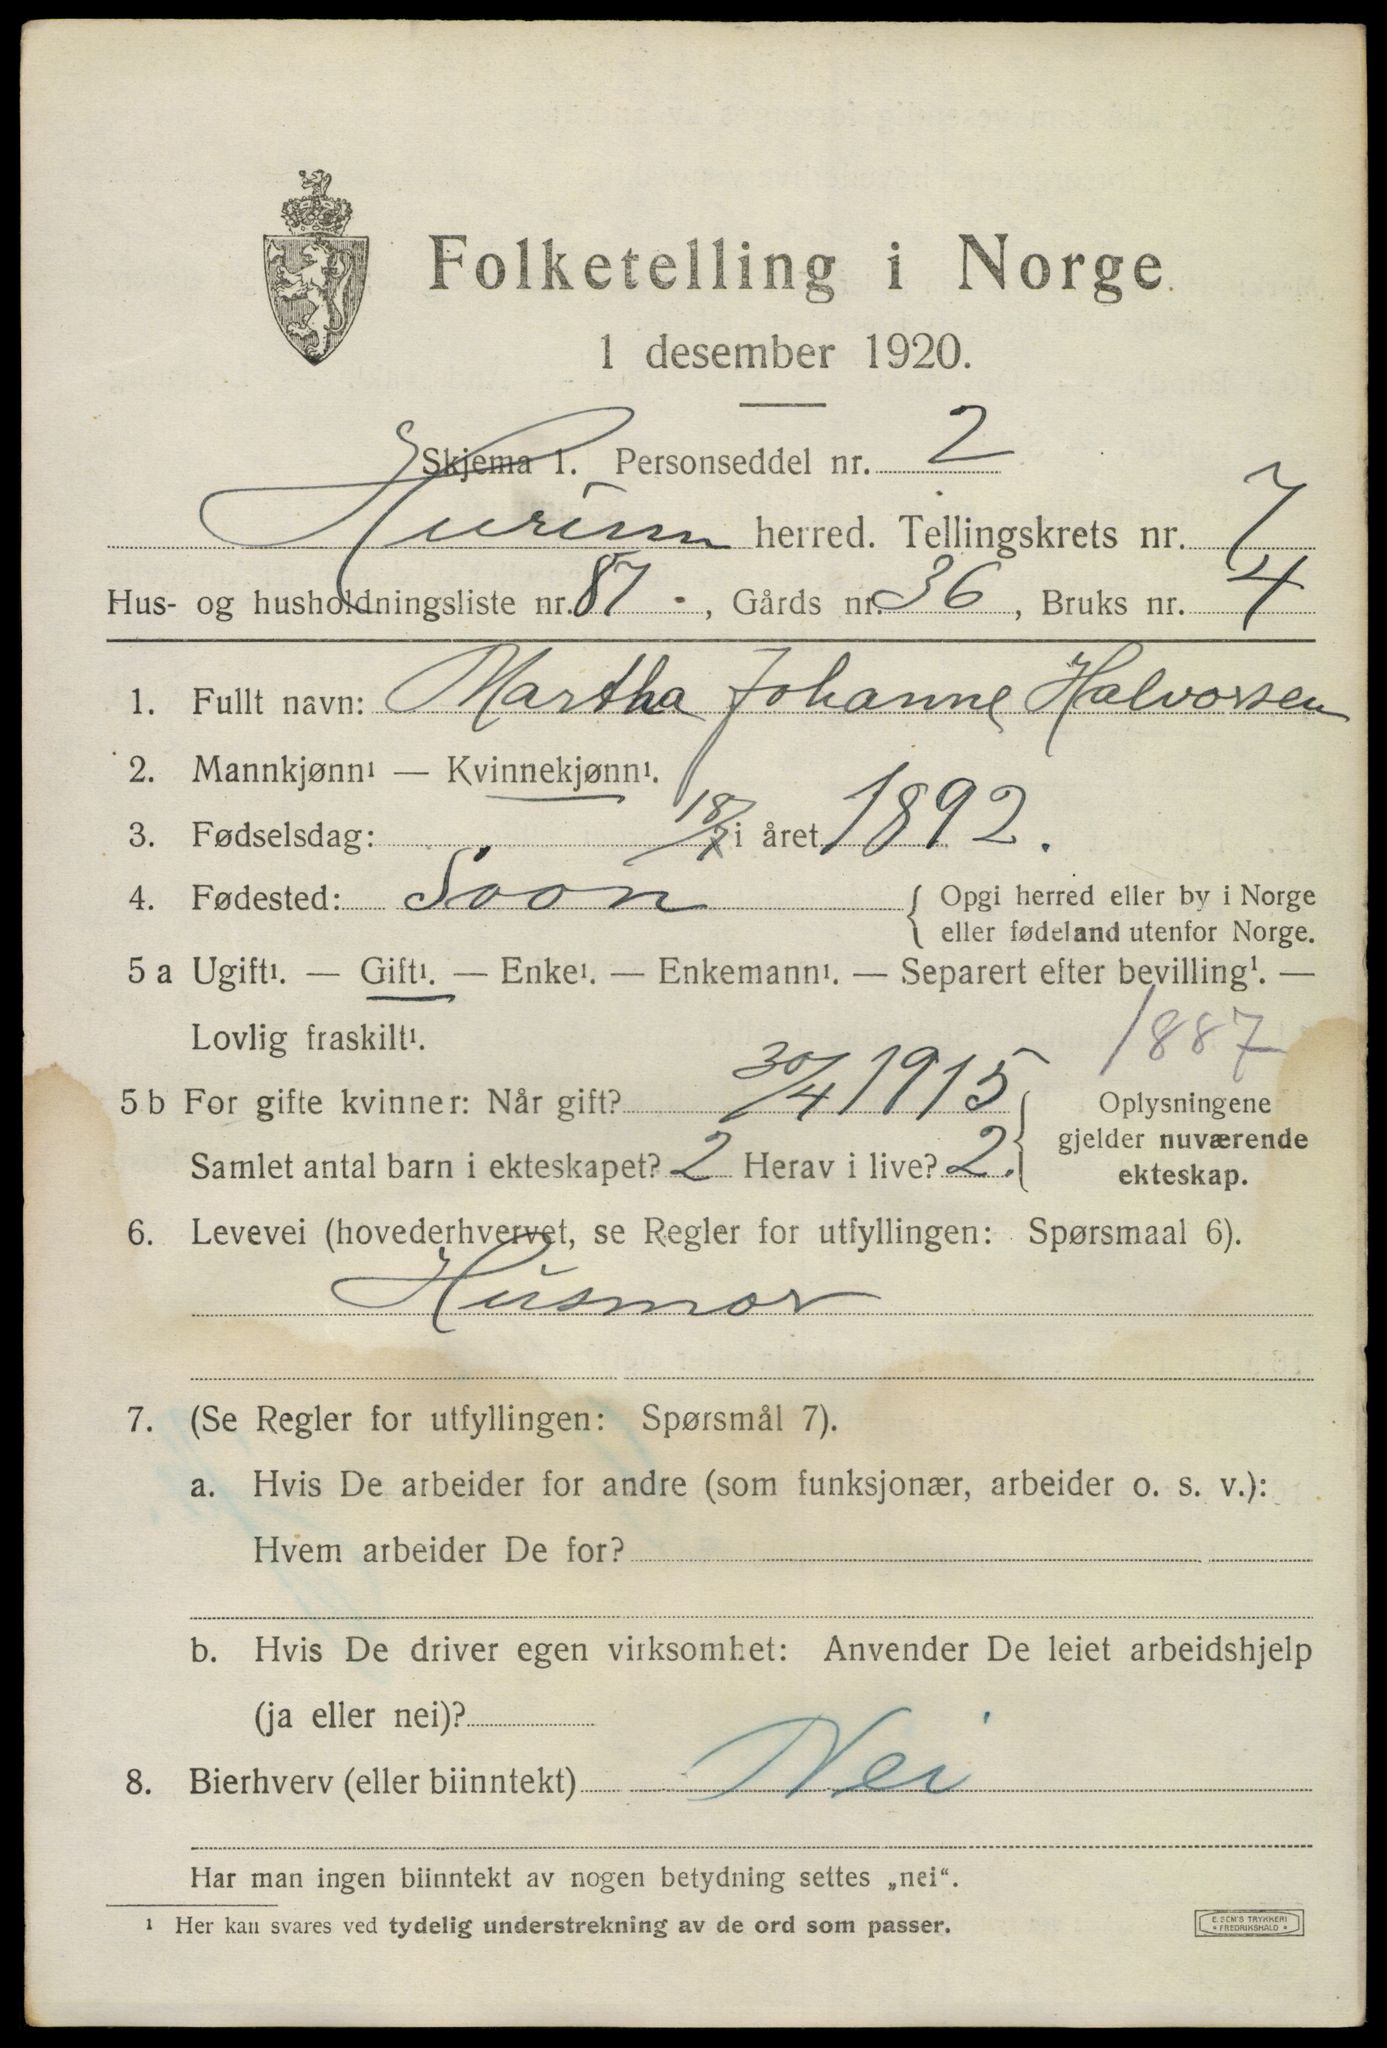 Folketelling i Norge
1 desember 1920.
Skjema 1. Personseddel nr. 2
Hurum herred. Tellingskrets nr. 7
Hus- og husholdningsliste nr. 87 . , Gårds nr. 36 , Bruks nr. 4
1. Fullt navn: Martha Johanne Halvorsen
2. Mannkjønn¹ — Kvinnekjønn¹.
3. Fødselsdag: 18/7 i året 1892.
4. Fødested: Soon { Opgi herred eller by i Norge
eller fødeland utenfor Norge.
5 a Ugift¹. — Gift¹. — Enke¹. — Enkemann¹. — Separert efter bevilling¹. —
Lovlig fraskilt¹. 1887
5 b For gifte kvinner: Når gift? 30/4 1915 { Oplysningene
gjelder nuværende
Samlet antal barn i ekteskapet? 2 Herav i live? 2.
ekteskap.
6. Levevei (hovederhvervet, se Regler for utfyllingen: Spørsmaal 6).
Husmor
7. (Se Regler for utfyllingen: Spørsmål 7).
a. Hvis De arbeider for andre (som funksjonær, arbeider o. s. v.):
Hvem arbeider De for?
b. Hvis De driver egen virksomhet: Anvender De leiet arbeidshjelp
(ja eller nei)?
8. Bierhverv (eller biinntekt) Nei
Har man ingen biinntekt av nogen betydning settes „nei“.
¹ Her kan svares ved tydelig understrekning av de ord som passer.
E. SEM'S TRYKKERI
* FREDRIKSHALD *